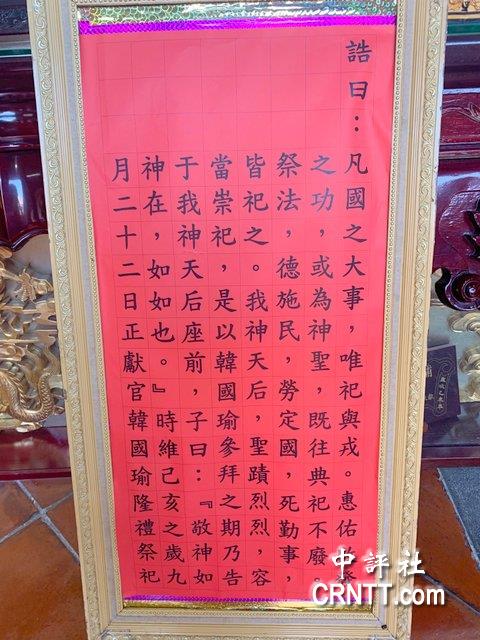 誥曰：凡國之大事，唯祀與戎。惠佑
之功，或為神聖，既往典祀不廢。
祭法，德施民，勞定國，死勤事，
皆祀之。我神天后，聖蹟烈烈，容
當崇祀，是以韓國瑜參拜之期乃告
于我神天后座前，子曰：『敬神如
神在，如如也。』時維己亥之歲九
月二十二日正獻官韓國瑜隆禮祭祀
中評社
CRNTT.com